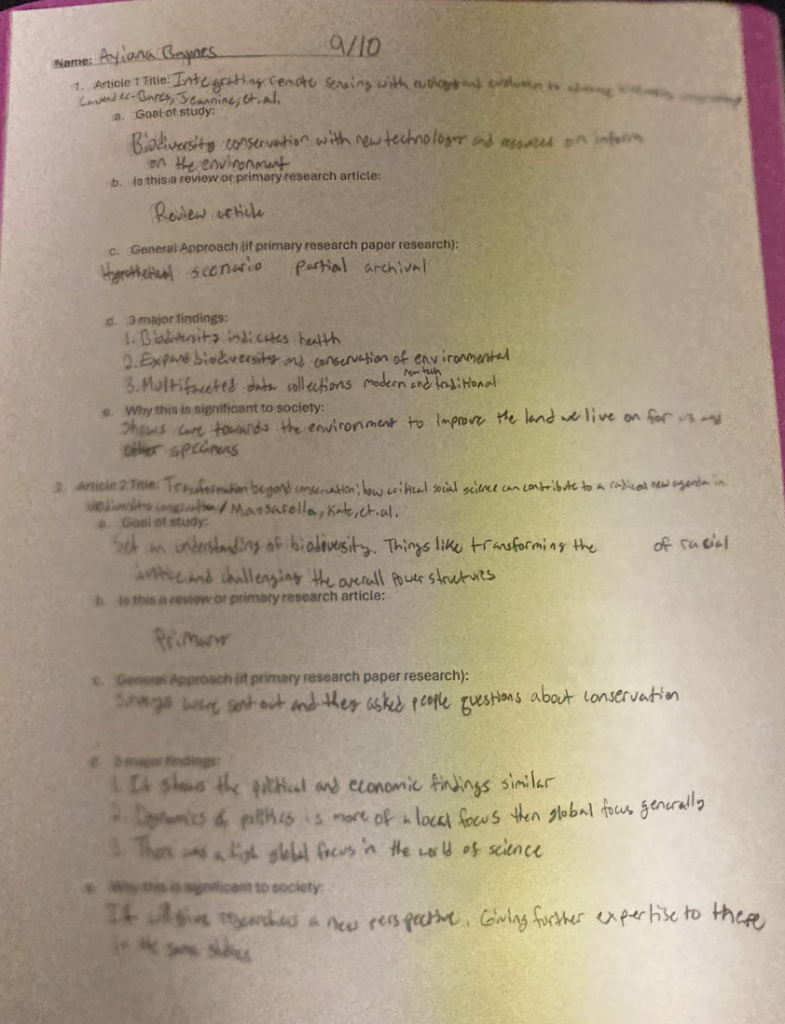 9/10
Name: Ayiana Baynes
1. Article 1 Title: Integrating remote sensing with ecology and evolution to
Cavender-Bares, Jeannine, et. al.
a. Goal of study:
Biodiversity conservation with new technology and on inform
on the environment
b. Is this a review or primary research article:
Review article
c. General Approach (if primary research paper research):
Hypothetical scenario partial archival
d. 3 major findings:
1. Biodiversity indicates health
2. Expand biodiversity and conservation of environmental
new tech
3. Multifaceted data collections modern and traditional
e. Why this is significant to society:
Shows care towards the environment to improve the land we live on for us and
other specimens
2. Article 2 Title: Transformation beyond conservation: how critical social science can contribute to a radical new agenda in
biodiversity conservation / Massarella, Kate, et. al.
a. Goal of study:
Set an understanding of biodiversity. Things like transforming the of racial
justice and challenging the overall power structures
b. Is this a review or primary research article:
Primary
c. General Approach (if primary research paper research):
Surveys were sent out and they asked people questions about conservation
d. 3 major findings:
1. It shows the political and economic findings similar
2. Dynamics of politics is more of a local focus then global focus generally
3. There was a high global focus in the world of science
e. Why this is significant to society:
It will give researchers a new perspective. Giving further expertise to there
in the same studies